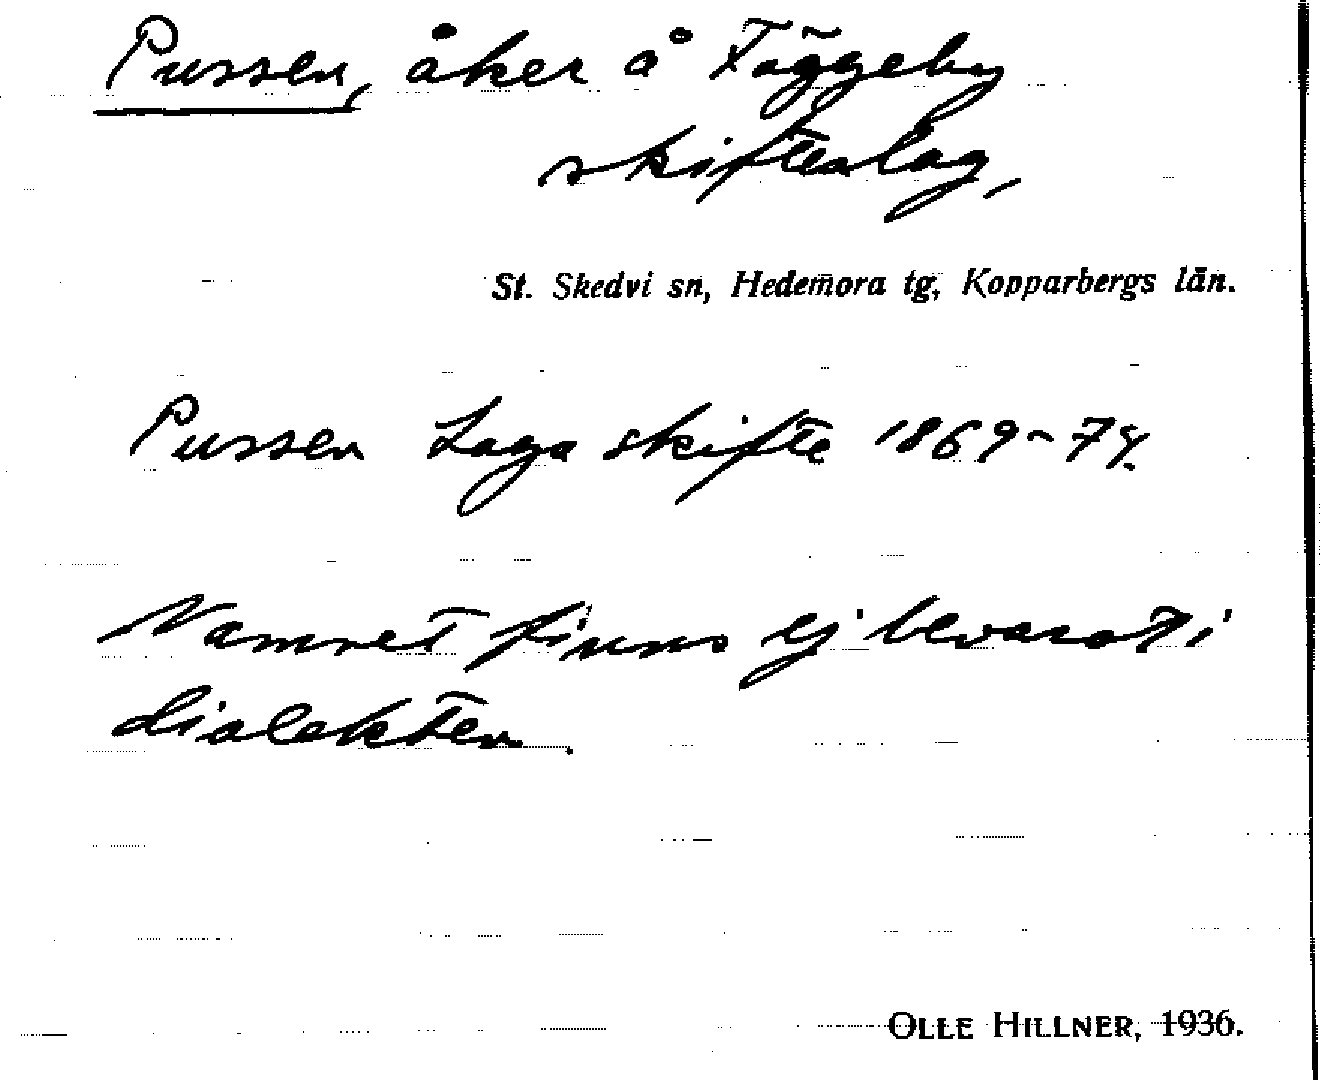 Pussen, åker å Fäggeby
skifteslag,
St. Skedvi sn, Hedemora tg, Kopparbergs län.
Pussen Laga skifte 1869-74.
Namnet finns ej bevarat i
dialekten.
OLLE HILLNER, 1936.